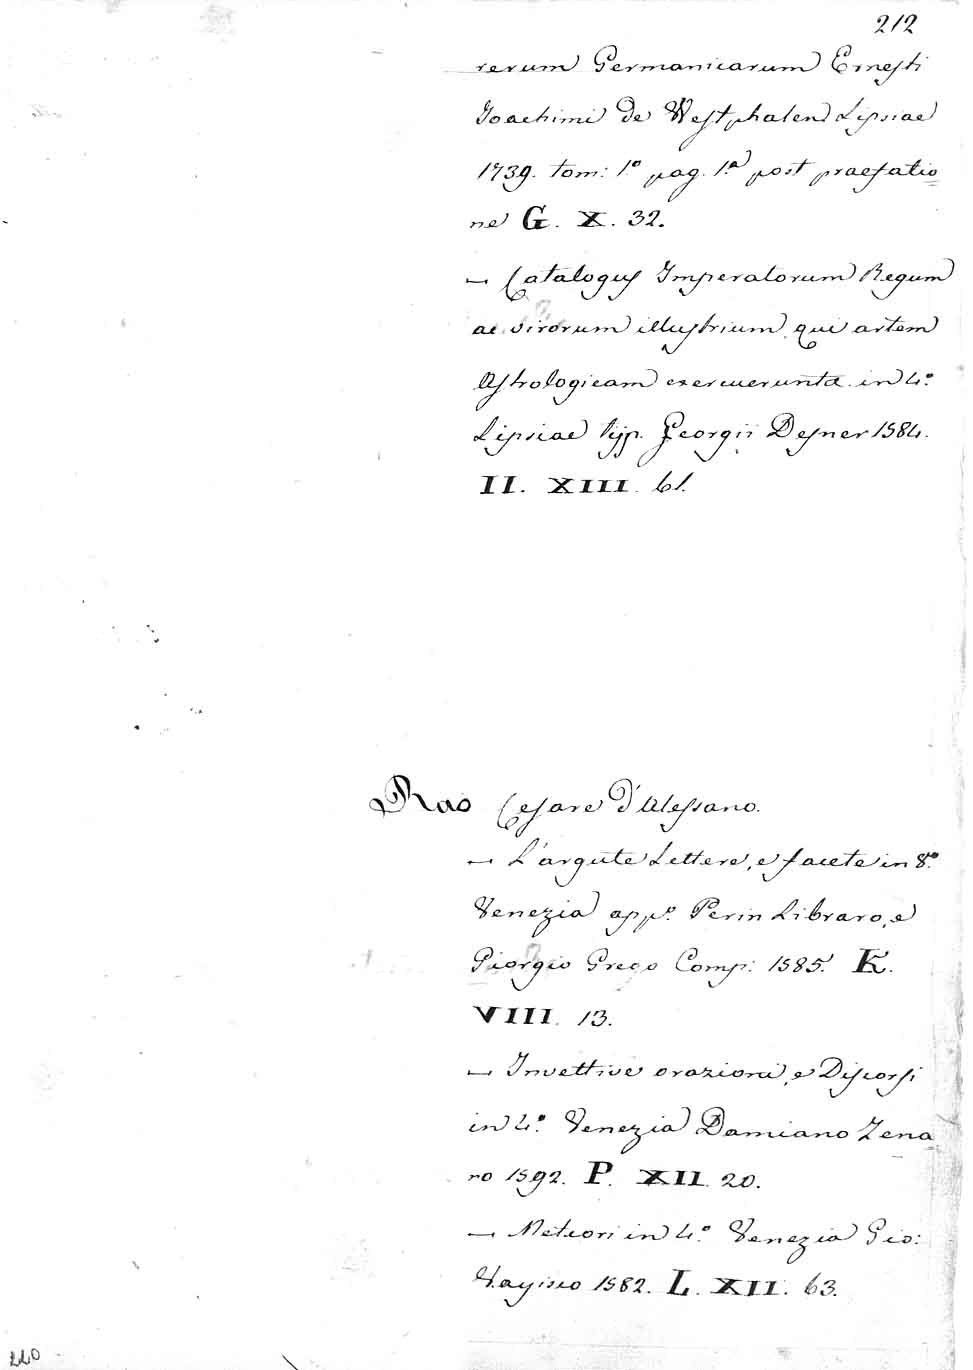 212
rerum Germanicarum Ernesti
Joachimi de Westphalen Lipsiae
1739. tom: 1.º pag. 1.ª post praefatio=
ne G. X. 32.
— Catalogus Imperatorum Regum
ac virorum illustrium qui artem
Astrologicam exercuerunt in 4.º
Lipsiae typ. Georgii Desner 1584.
II. XIII. 61.
Rao Cesare d'Alessano.
— L'argute Lettere, e facete in 8.º
Venezia app.º Perin Libraro, e
Giorgio Greco Comp: 1585. K.
VIII. 13.
— Invettive orazioni, e Discorsi
in 4.º Venezia Damiano Zena=
ro 1592. P. XII. 20.
— Meteori in 4.º Venezia Gio:
Varisco 1582. L. XII. 63.
220